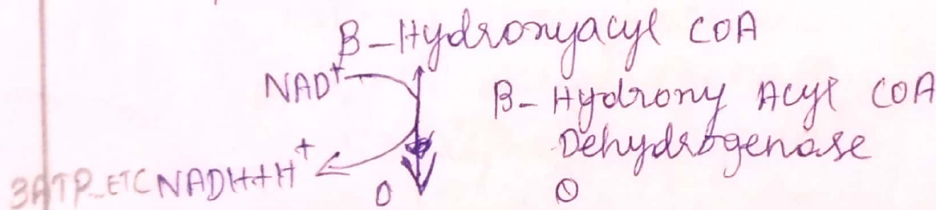 β-Hydronyacyl COA
NAD+
β- Hydrony Acyl COA
Dehydrogenase
3ATP_ETC NADH+H+
O O